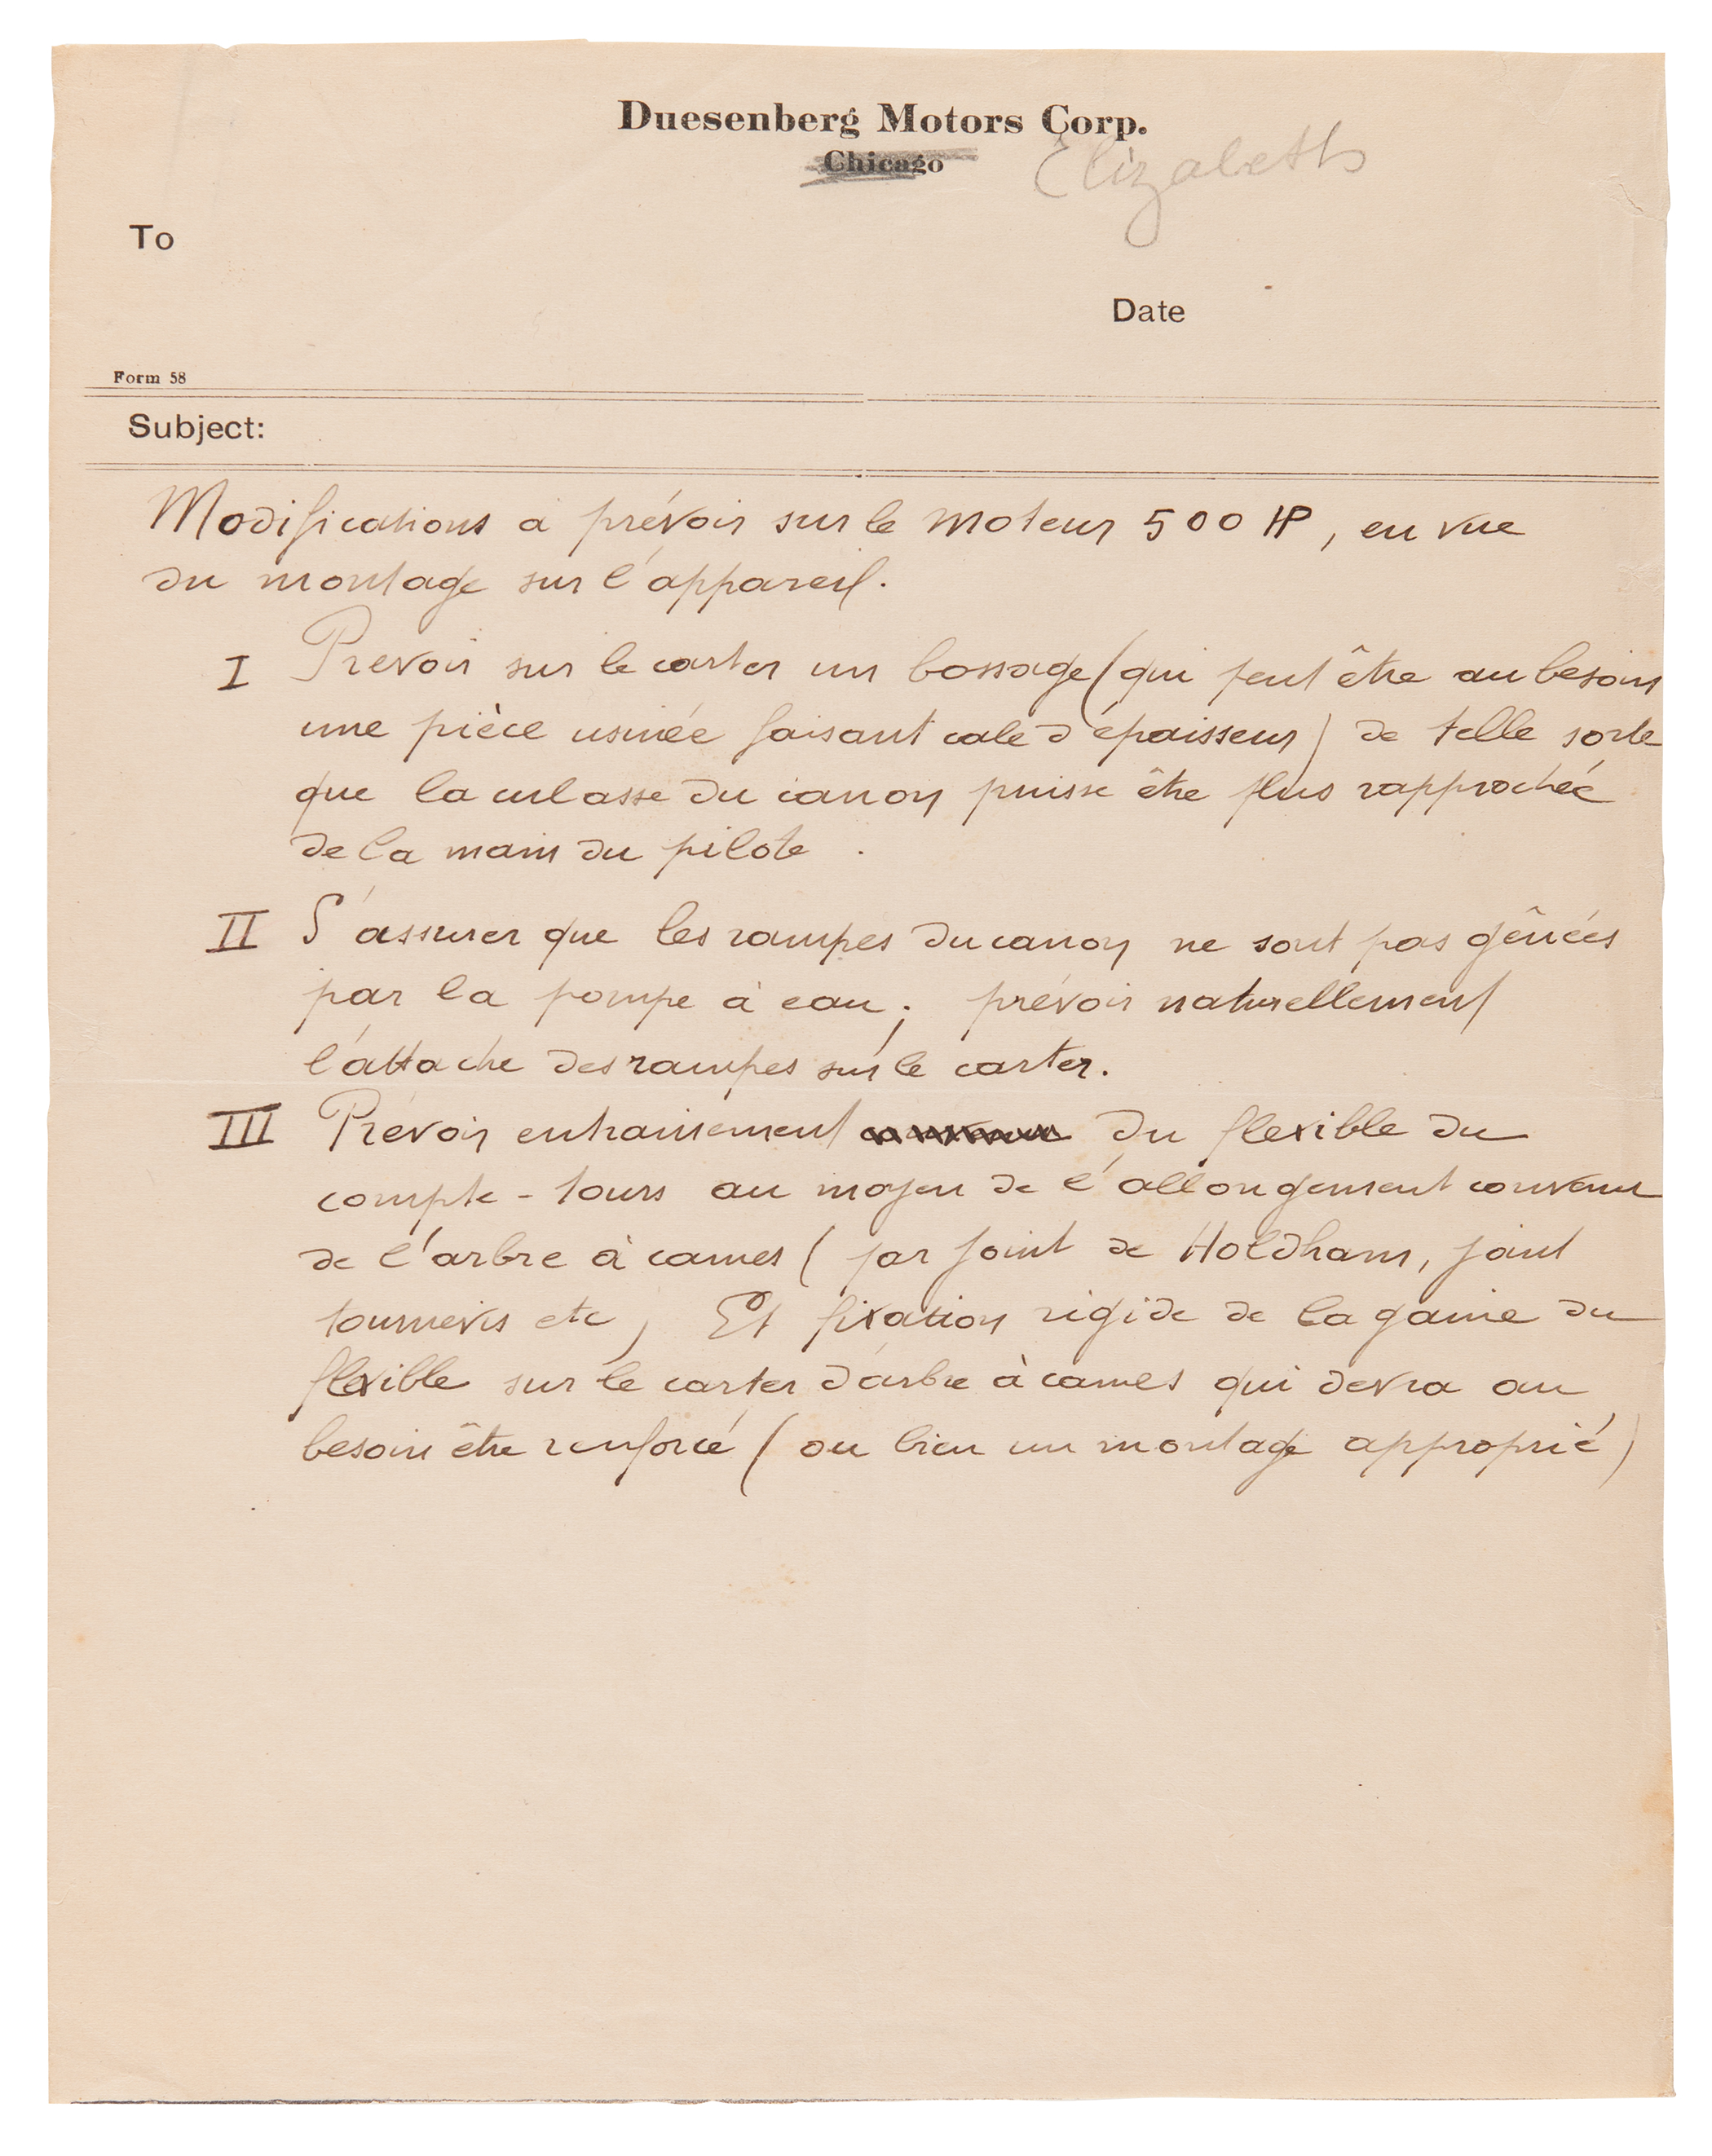 Duesenberg Motors Corp.
Chicago
Elizabeth
To
Date
Form 58
Subject:
Modifications a prévoir sur le moteur 500 HP, en vue
du montage sur l'appareil.
I Prevoir sur le carter un bossage (qui peut être au besoin
une pièce usinée faisant cale d'épaisseur) de telle sorte
que la culasse du canon puisse être plus rapprochée
de la main du pilote.
II S'assurer que les rampes du canon ne sont pas gênées
par la pompe à eau; prévoir naturellement
l'attache des rampes sur le carter.
III Prévoir entrainement du flexible du
compte-tours au moyen de l'allongement convenu
de l'arbre à cames (par joint de Holdham, joint
tournevis etc) Et fixation rigide de la gaine du
flexible sur le carter d'arbre à cames qui devra au
besoin être renforcé (ou bien un montage approprié)